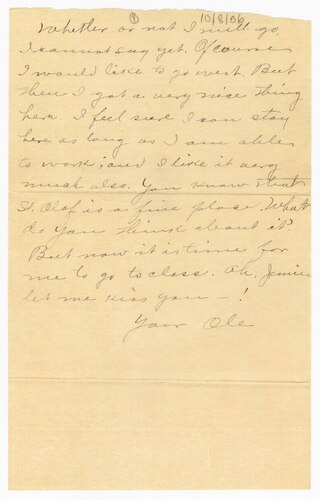 ① 10/8/06
Whether or not I will go,
I cannot say yet. Of course
I would like to go west. But
then I got a very nice thing
here. I feel sure I can stay
here as long as I am able
to work; and I like it very
much also. You know that
St. Olaf is a fine place. What
do you think about it?
But now it is time for
me to go to class. Oh, Jennie
let me kiss you — !
Your Ole